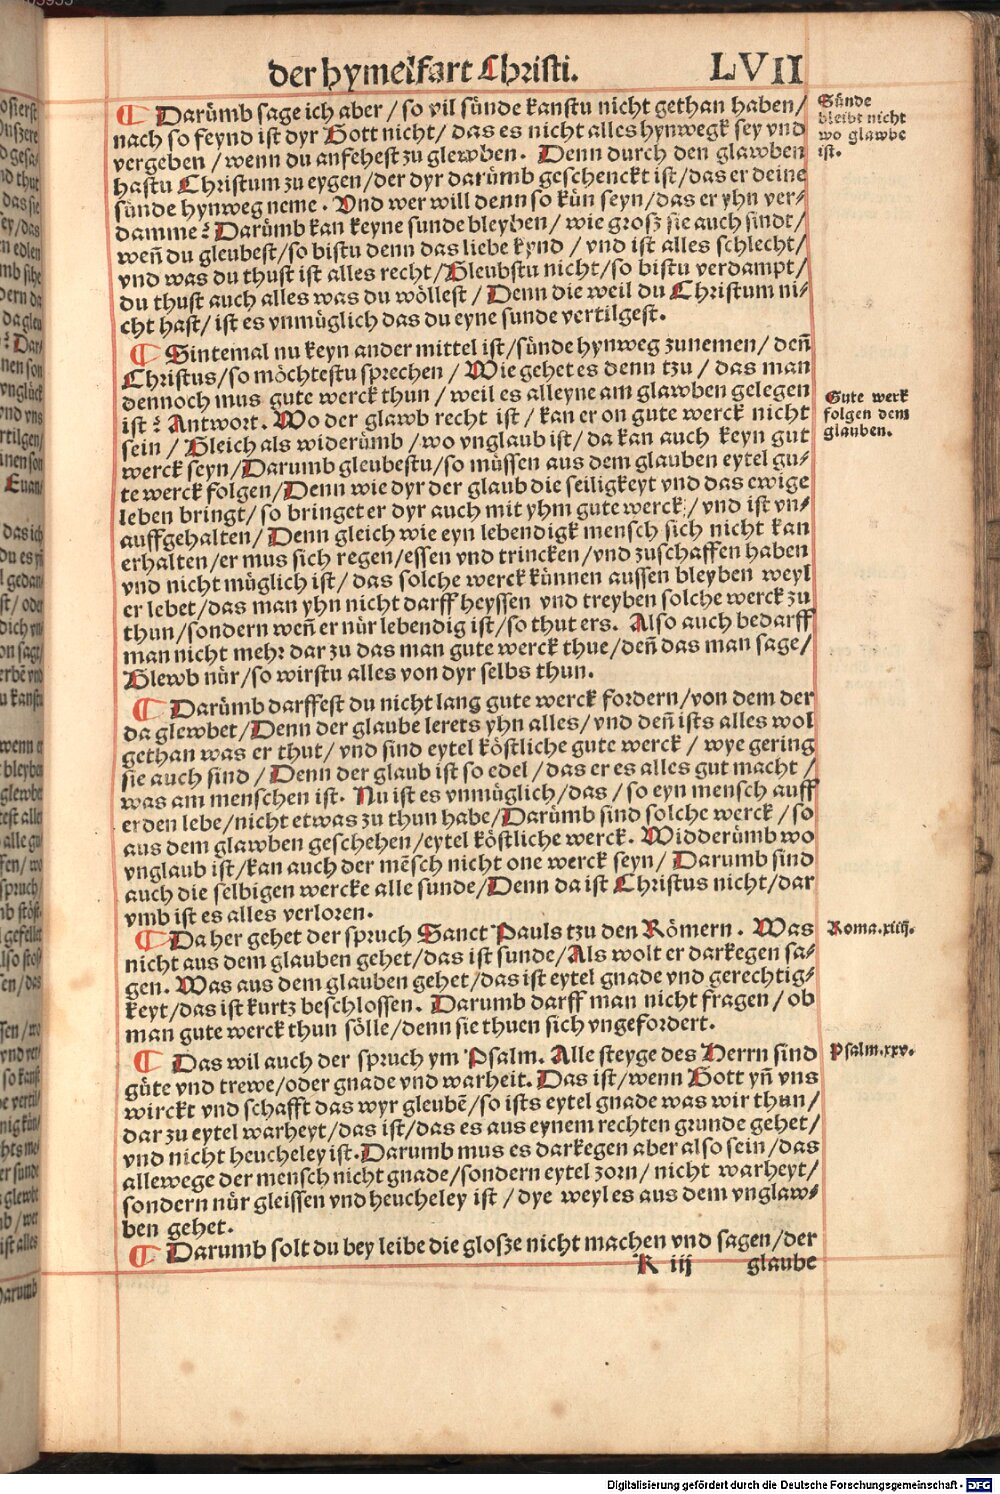 der hymelfart Christi. LVII
¶ Darümb sage ich aber / so vil sünde kanstu nicht gethan haben/
nach so feynd ist dyr Gott nicht/ das es nicht alles hynwegk sey vnd
vergeben / wenn du anfehest zu glewben. Denn durch den glawben
hastu Christum zu eygen/der dyr darümb geschenckt ist/das er deine
sünde hynweg neme. Vnd wer will denn so kün seyn/das er yhn ver⸗
damme? Darümb kan keyne sunde bleyben/ wie grosz sie auch sindt/
weñ du gleubest/so bistu denn das liebe kynd / vnd ist alles schlecht/
vnd was du thust ist alles recht/Gleubstu nicht/so bistu verdampt/
du thust auch alles was du wöllest / Denn die weil du Christum ni⸗
cht hast/ ist es vnmüglich das du eyne sunde vertilgest.
Sünde
bleibt nicht
wo glawbe
ist.
¶ Sintemal nu keyn ander mittel ist/sünde hynweg zunemen/ deñ
Christus/so möchtestu sprechen / Wie gehet es denn tzu / das man
dennoch mus gute werck thun / weil es alleyne am glawben gelegen
ist? Antwort. Wo der glawb recht ist / kan er on gute werck nicht
sein / Gleich als widerümb / wo vnglaub ist/ da kan auch keyn gut
werck seyn/Darumb gleubestu/so müssen aus dem glauben eytel gu⸗
te werck folgen/Denn wie dyr der glaub die seiligkeyt vnd das ewige
leben bringt/ so bringet er dyr auch mit yhm gute werck:/ vnd ist vn⸗
auffgehalten/ Denn gleich wie eyn lebendigk mensch sich nicht kan
erhalten/er mus sich regen/essen vnd trincken/vnd zuschaffen haben
vnd nicht müglich ist/ das solche werck künnen aussen bleyben weyl
er lebet/das man yhn nicht darff heyssen vnd treyben solche werck zu
thun/sondern weñ er nür lebendig ist/so thut ers. Also auch bedarff
man nicht mehr dar zu das man gute werck thue/deñ das man sage/
Glewb nür/so wirstu alles von dyr selbs thun.
Gute werk
folgen dem
glauben.
¶ Darümb darffest du nicht lang gute werck fordern/von dem der
da glewbet/Denn der glaube lerets yhn alles/ vnd deñ ists alles wol
gethan was er thut/ vnd sind eytel köstliche gute werck / wye gering
sie auch sind / Denn der glaub ist so edel / das er es alles gut macht /
was am menschen ist. Nu ist es vnmüglich/das / so eyn mensch auff
erden lebe/nicht etwas zu thun habe/Darümb sind solche werck / so
aus dem glawben geschehen/eytel köstliche werck. Widderümb wo
vnglaub ist/kan auch der mẽsch nicht one werck seyn/ Darumb sind
auch die selbigen wercke alle sunde/Denn da ist Christus nicht/dar
vmb ist es alles verloren.
¶ Da her gehet der spruch Sanct Pauls tzu den Römern. Was
nicht aus dem glauben gehet/das ist sunde/Als wolt er darkegen sa⸗
gen. Was aus dem glauben gehet/das ist eytel gnade vnd gerechtig⸗
keyt/das ist kurtz beschlossen. Darumb darff man nicht fragen/ ob
man gute werck thun sölle/denn sie thuen sich vngefordert.
Roma.xiiij.
¶ Das wil auch der spruch ym Psalm. Alle steyge des Herrn sind
güte vnd trewe/oder gnade vnd warheit. Das ist/wenn Gott yñ vns
wirckt vnd schafft das wyr gleubẽ/so ists eytel gnade was wir thun/
dar zu eytel warheyt/das ist/das es aus eynem rechten grunde gehet/
vnd nicht heucheley ist. Darumb mus es darkegen aber also sein/das
allewege der mensch nicht gnade/sondern eytel zorn/ nicht warheyt/
sondern nür gleissen vnd heucheley ist / dye weyl es aus dem vnglaw⸗
ben gehet.
Psalm.xxv.
¶ Darumb solt du bey leibe die glosze nicht machen vnd sagen/der
K iij glaube
Digitalisierung gefördert durch die Deutsche Forschungsgemeinschaft - DFG